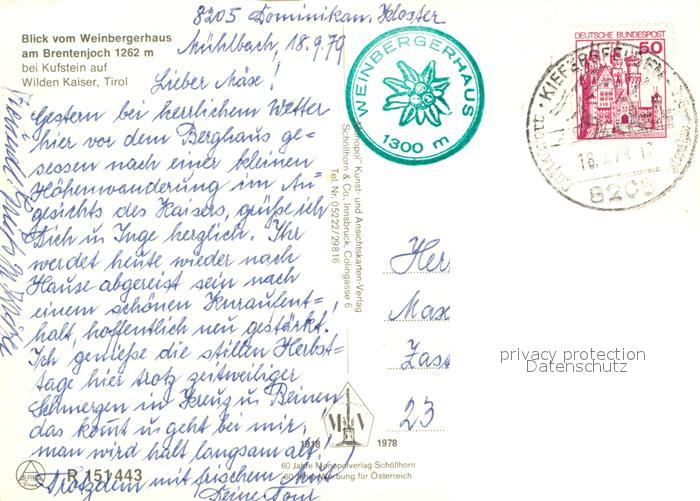 8205 Dominikan. Kloster
Mühlbach, 18.9.79
Blick vom Weinbergerhaus
am Brentenjoch 1262 m
bei Kufstein auf
Wilden Kaiser, Tirol
Lieber Mäxe!
Gestern bei herrlichem Wetter
hier vor dem Berghaus ge-
sessen nach einer kleinen
Höhenwanderung im An-
gesichts des Kaisers, grüße ich
Dich u Inge herzlich. Ihr
werdet heute wieder nach
Hause abgereist sein nach
einem schönen Kuraufent-
halt, hoffentlich neu gestärkt!
Ich genieße die stillen Herbst-
tage hier trotz zeitweiliger
Schmerzen im Kreuz u Beinen,
das kommt u geht bei mir,
man wird halt langsam alt!
Trotzdem mit frischem Mut
Deine
WEINBERGERHAUS
1300 m
DEUTSCHE BUNDESPOST
50
8205
"Monopol" Kunst- und Ansichtskarten-Verlag
Schöllhorn & Co., Innsbruck, Colingasse 6
Tel. Nr. 05222/29816
Her
Max
Zass
23
privacy protection
Datenschutz
1918 MV 1978
60 Jahre Monopolverlag Schöllhorn
60 Jahre Werbung für Österreich
ALPINA
R 151 443